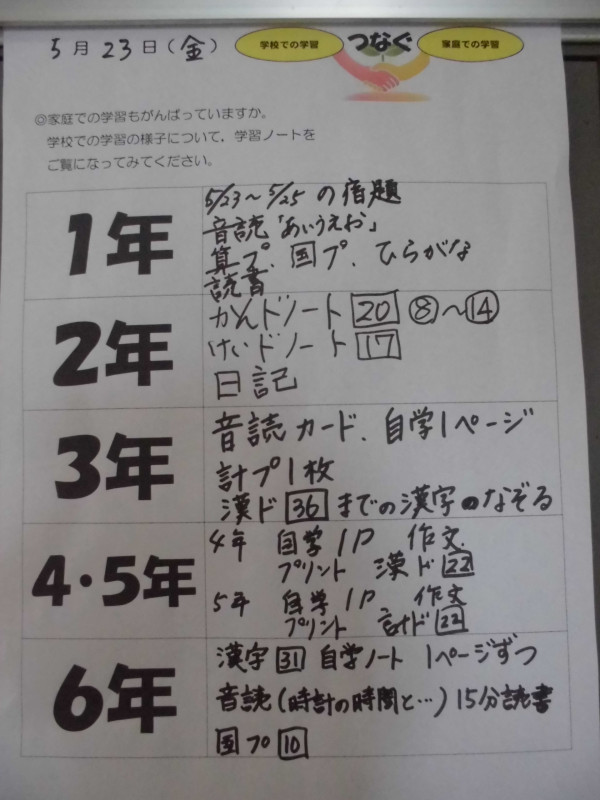 5月23日(金)
学校での学習 つなぐ 家庭での学習
◎家庭での学習もがんばっていますか。
学校での学習の様子について、学習ノートを
ご覧になってみてください。
1年
5/23～5/25 の宿題
音読「あいうえお」
算プ、国プ、ひらがな
読書
2年
かんドノート 20 ⑧～⑭
けいドノート 17
日記
3年
音読カード、自学1ページ
計プ1枚
漢ド 36 までの漢字 なぞる
4・5年
4年 自学1P 作文
プリント 漢ド 22
5年 自学1P 作文
プリント 計ド 22
6年
漢字 31 自学ノート 1ページずつ
音読(時計の時間と…)15分読書
国プロ 10